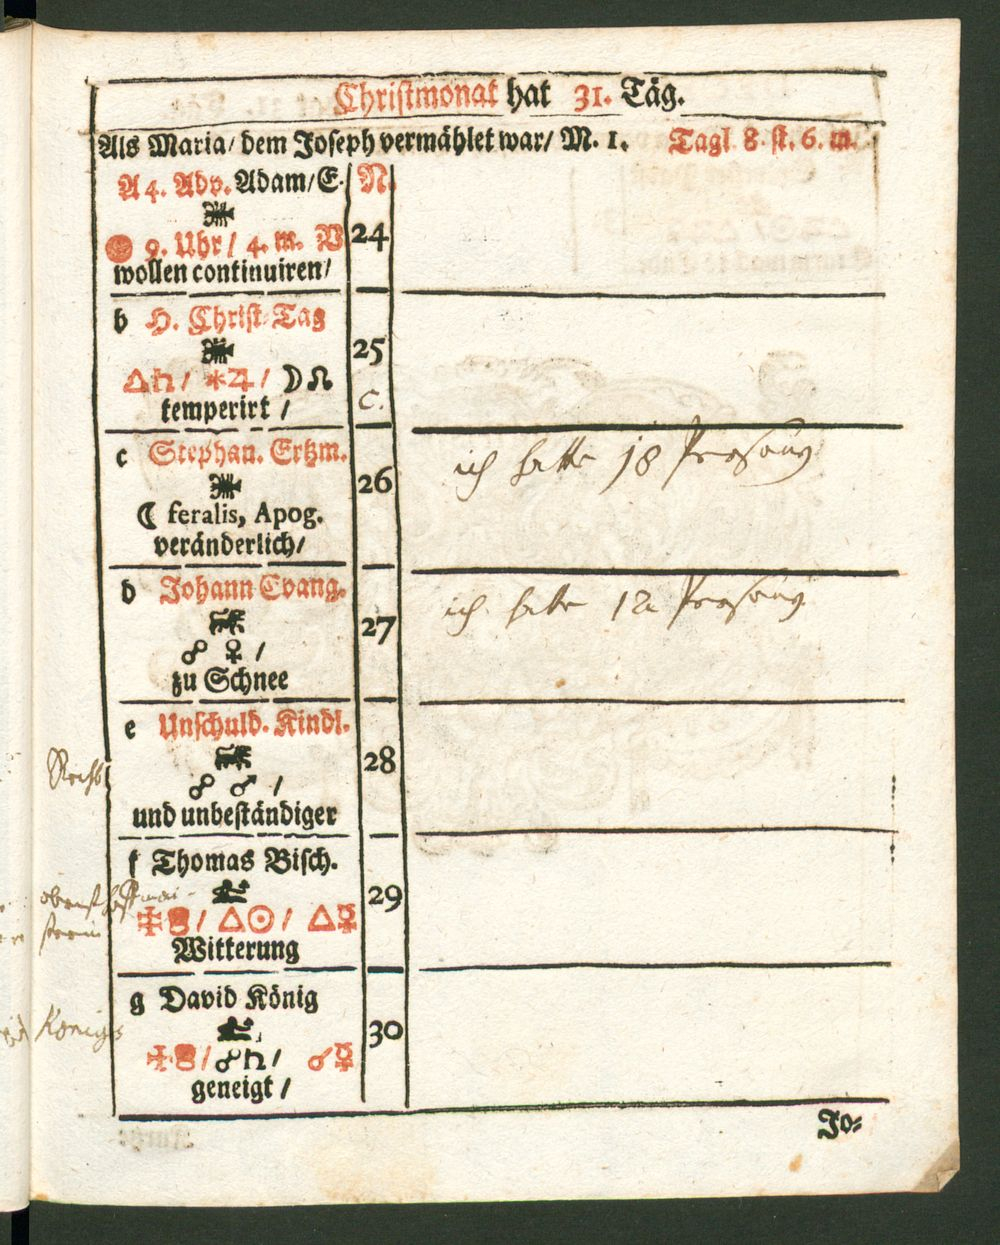 Christmonat hat 31. Täg.
Als Maria/ dem Joseph vermählet war/ M. 1. Tagl 8. st. 6. m.
A 4. Adv. Adam/E. N.
9. Uhr / 4. m. V 24
wollen continuiren/
b H. Christ-Tag
25
△♄/ ⚹♃/ ☽☊
temperirt / C.
c Stephan. Ertzm.
ich hatte 18 Persong
26
☾ feralis, Apog.
veränderlich/
d Johann Evang.
ich habe 12 Persong
27
☍ ♀ /
zu Schnee
e Unschuld. Kindl.
28
☍ ♂ /
und unbeständiger
f Thomas Bisch.
29
/ △☉ / △☿
Witterung
g David König
30
Königs
/ ☍♄/ ☌☿
geneigt /
Jo-